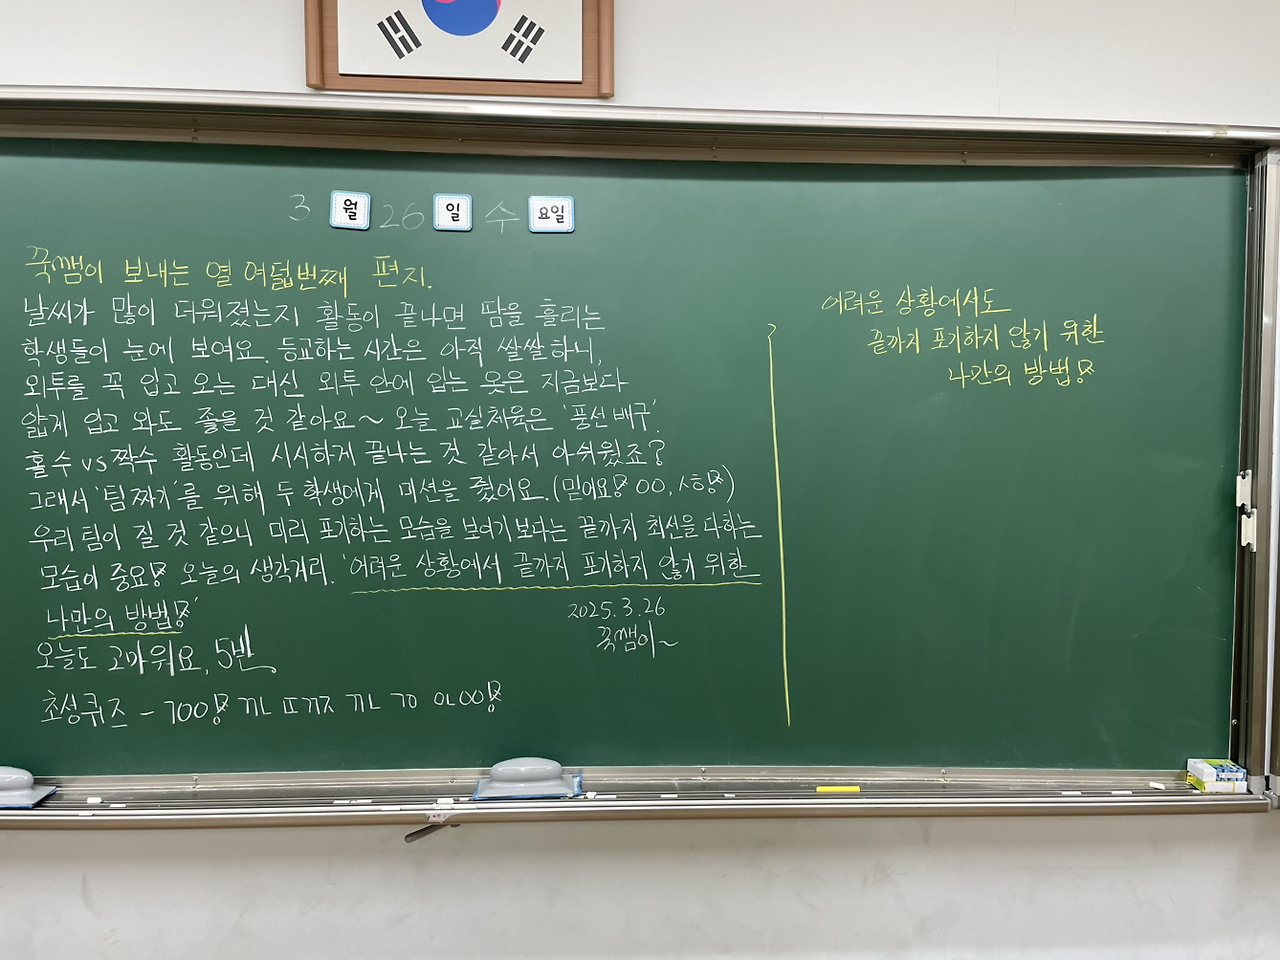 3 월 26 일 수 요일
꾹쌤이 보내는 열 여덟번째 편지.
날씨가 많이 더워졌는지 활동이 끝나면 땀을 흘리는
학생들이 눈에 보여요. 등교하는 시간은 아직 쌀쌀하니,
외투를 꼭 입고 오는 대신 외투 안에 입는 옷은 지금보다
얇게 입고 와도 좋을 것 같아요~ 오늘 교실체육은 '풍선배구'.
홀수 vs 짝수 활동인데 시시하게 끝나는 것 같아서 아쉬웠죠?
그래서 '팀짜기'를 위해 두 학생에게 미션을 줬어요. (믿어요! 00, 시흐!)
우리팀이 질 것 같으니 미리 포기하는 모습을 보여기보다는 끝까지 최선을 다하는
모습이 중요! 오늘의 생각거리. '어려운 상황에서 끝까지 포기하지 않기 위한
나만의 방법!'
2025.3.26
꾹쌤이~
오늘도 고마워요, 5반.
초성퀴즈 - ㄱ00! ㄲㄴ ㄸㄱㅈ ㄲㄴ ㄱㅇ ㅇㄴ00!
어려운 상황에서도
끝까지 포기하지 않기 위한
나만의 방법!